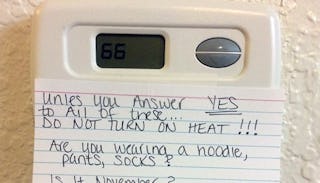 66
Unless You Answer YES
to All of these...
DO NOT TURN ON HEAT!!!
Are you wearing a hoodie,
pants, socks?
Is it November?